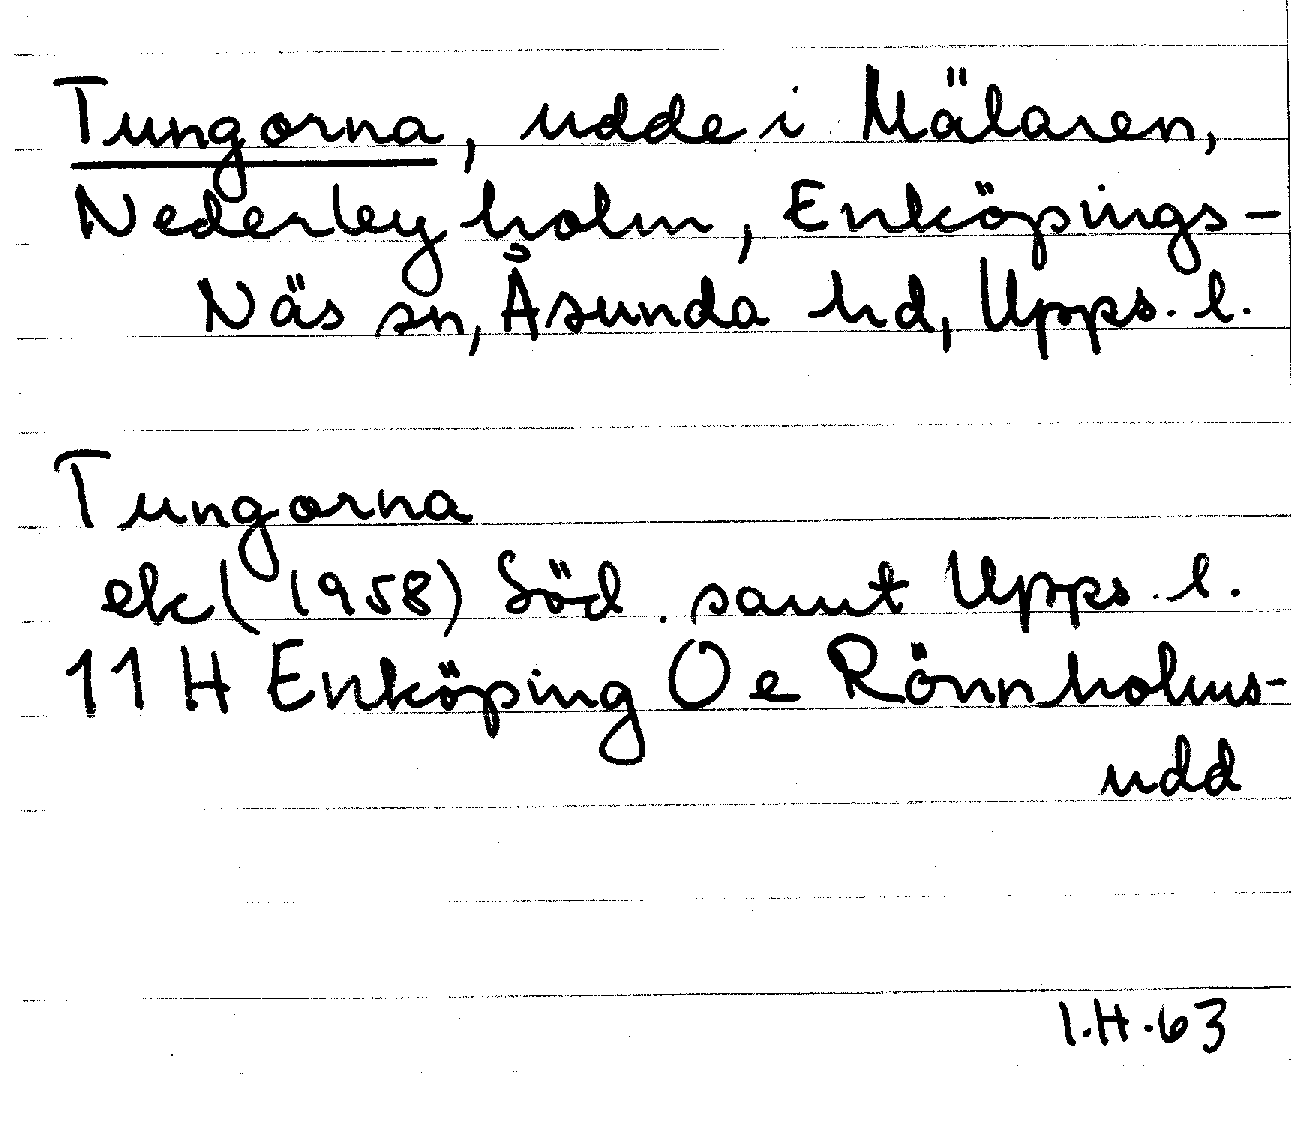 Tungorna, udde i Mälaren,
Nederby holm, Enköpings-
Näs sn, Åsunda hd, Upps. l.
Tungorna
ek (1958) Söd. samt Upps. l.
11 H Enköping O e Rönnholms-
udd
I.H.63